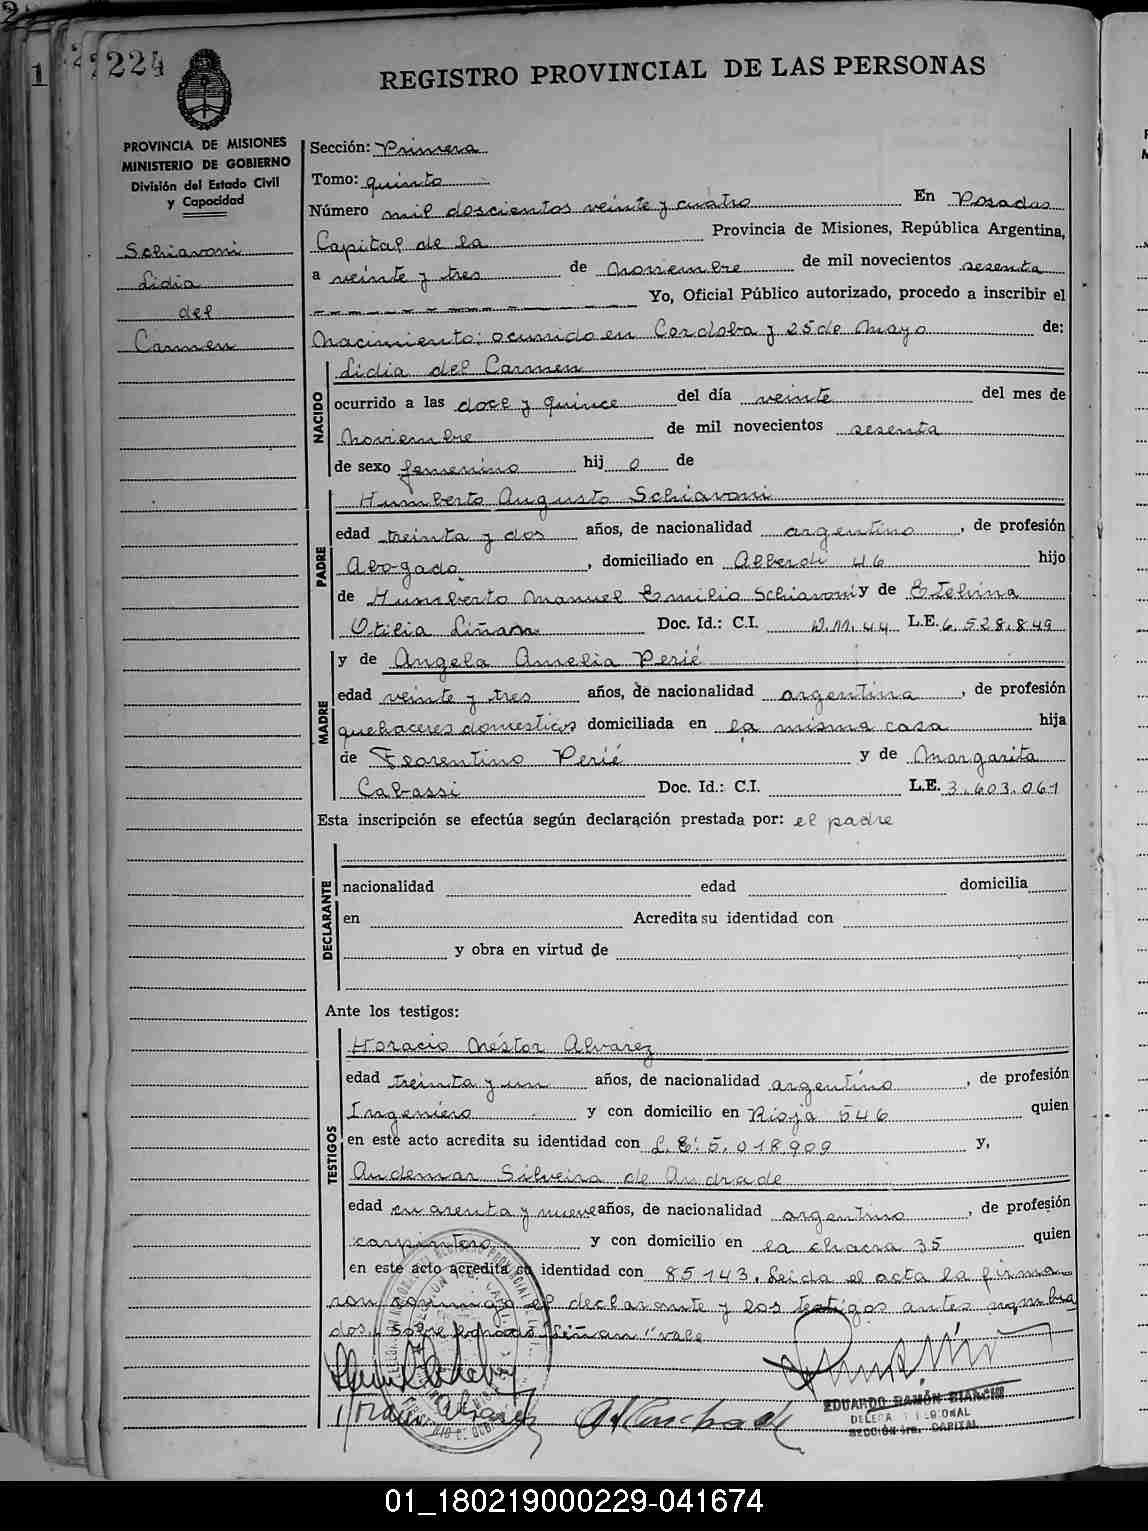 224
1
REGISTRO PROVINCIAL DE LAS PERSONAS
PROVINCIA DE MISIONES
MINISTERIO DE GOBIERNO
División del Estado Civil
y Capacidad
Schiavoni
Lidia
del
Carmen
Sección: Primera
Tomo: quinto
Número mil doscientos veinte y cuatro En Posadas
Capital de la Provincia de Misiones, República Argentina,
a veinte y tres de Noviembre de mil novecientos sesenta
Yo, Oficial Público autorizado, procedo a inscribir el
Nacimiento: ocurrido en Cordoba y 25 de Mayo de:
NACIDO
Lidia del Carmen
ocurrido a las doce y quince del día veinte del mes de
Noviembre de mil novecientos sesenta
de sexo femenino hij o de
PADRE
Humberto Augusto Schiavoni
edad treinta y dos años, de nacionalidad argentino, de profesión
Abogado, domiciliado en Alberdi 46 hijo
de Humberto Manuel Emilio Schiavoni y de Etelvina
Otilia Liñan Doc. Id.: C.I. 12.111.44 L.E. 6.528.849
MADRE
y de Angela Amelia Perié
edad veinte y tres años, de nacionalidad argentina, de profesión
quehaceres domesticos domiciliada en la misma casa hija
de Florentino Perié y de Margarita
Cabassi Doc. Id.: C.I. L.E. 3.603.061
Esta inscripción se efectúa según declaración prestada por: el padre
DECLARANTE
nacionalidad edad domicilia
en Acredita su identidad con
y obra en virtud de
Ante los testigos:
TESTIGOS
Horacio Néstor Alvarez
edad treinta y un años, de nacionalidad argentino, de profesión
Ingeniero y con domicilio en Rioja 546 quien
en este acto acredita su identidad con L.E: 5.018.909 y,
Audemar Silveira de Andrade
edad cuarenta y nueve años, de nacionalidad argentino, de profesión
carpintero y con domicilio en la chacra 35 quien
en este acto acredita su identidad con 85143. Leida el acta la firma
ron conmigo el declarante y los testigos antes nombra
dos. Sobre borrado "Liñan" vale
EDUARDO RAMÓN BIANCHI
DELEGADO REGIONAL
SECCIÓN 1ra. CAPITAL
01_180219000229-041674